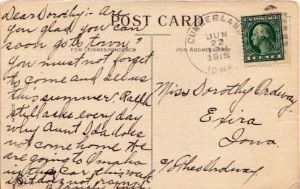 Dear Dorothy:- Are
you glad you can
soon go to town?
you must not forget
to come and see us
this summer. Ralph
still asks every day
why Aunt Ida does
not come home. We
are going to make
up the car this week
but do not
POST CARD
CUMBERLAND
JUN
22
1915
IOWA
1 CENT 1
Miss Dorothy Ordway
Exira
Iowa
c/o Chas Ordway